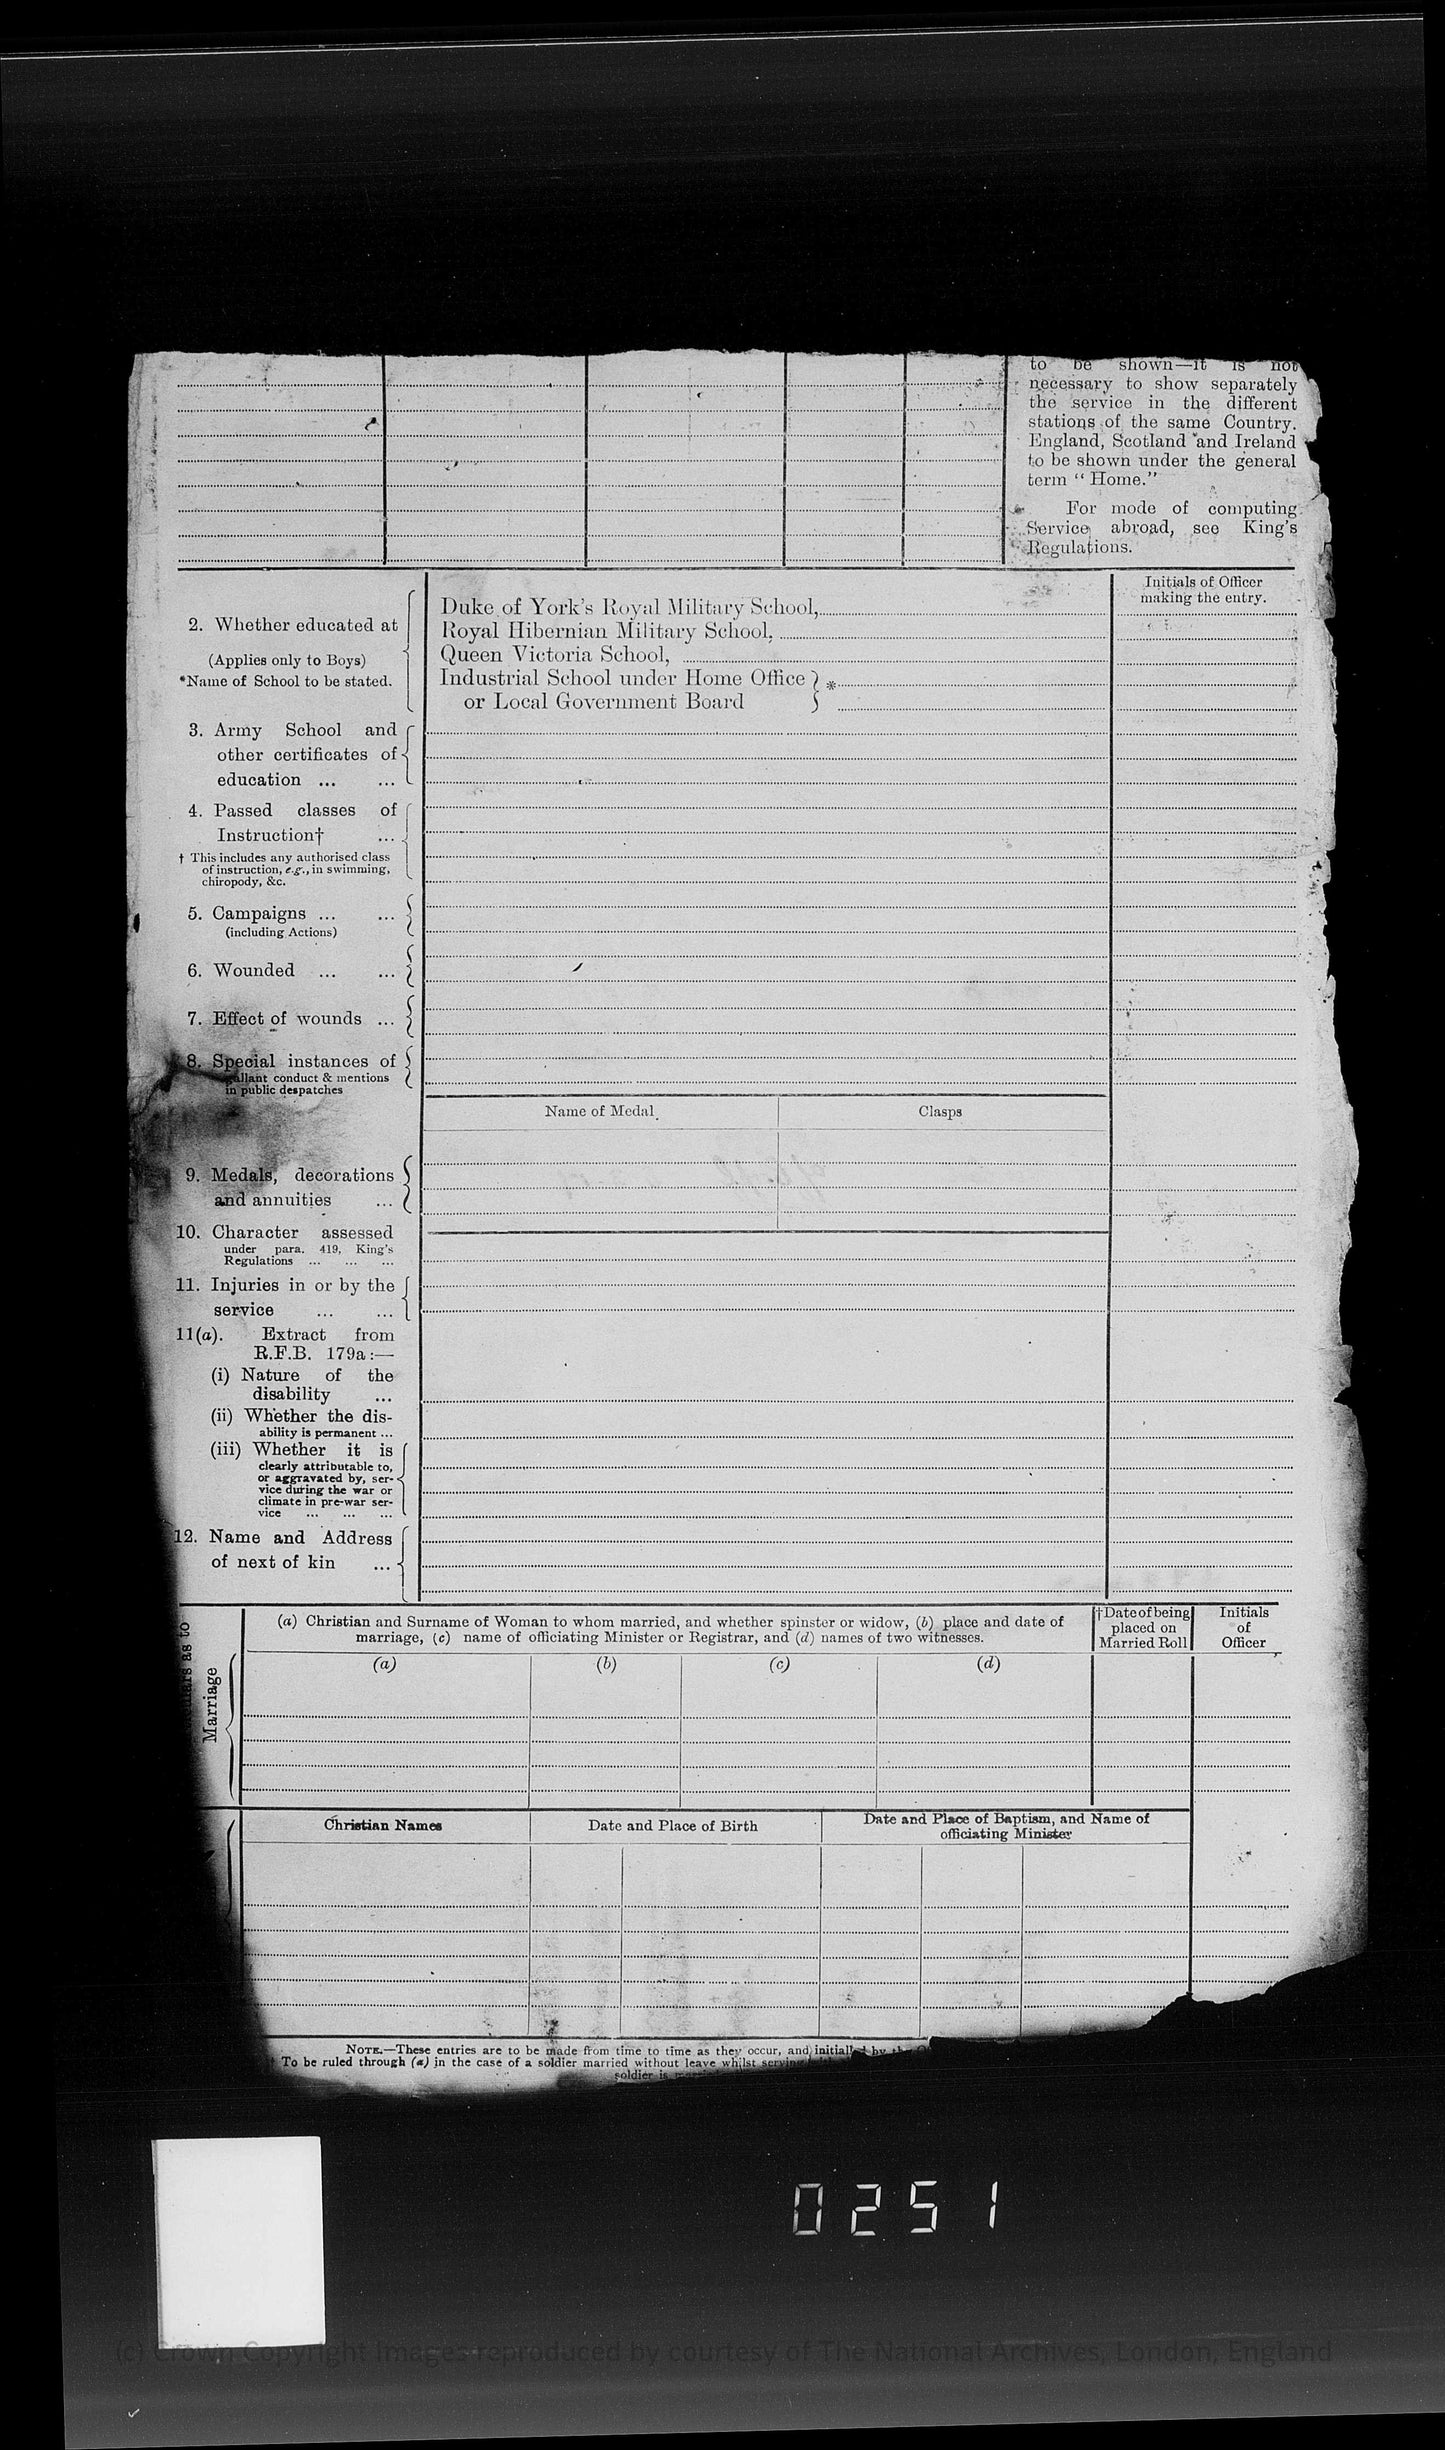 to be shown—it is not
necessary to show separately
the service in the different
stations of the same Country.
England, Scotland and Ireland
to be shown under the general
term “Home.”
For mode of computing
Service abroad, see King's
Regulations.
Initials of Officer
making the entry.
2. Whether educated at
(Applies only to Boys)
*Name of School to be stated.
Duke of York's Royal Military School,
Royal Hibernian Military School,
Queen Victoria School,
Industrial School under Home Office } *
or Local Government Board
3. Army School and
other certificates of
education ... ...
4. Passed classes of
Instruction† ...
† This includes any authorised class
of instruction, e.g., in swimming,
chiropody, &c.
5. Campaigns ... ...
(including Actions)
6. Wounded ... ...
7. Effect of wounds ...
8. Special instances of
gallant conduct & mentions
in public despatches
Name of Medal. Clasps
9. Medals, decorations
and annuities ...
10. Character assessed
under para. 419, King's
Regulations ... ... ...
11. Injuries in or by the
service ... ...
11(a). Extract from
R.F.B. 179a:—
(i) Nature of the
disability ...
(ii) Whether the dis-
ability is permanent ...
(iii) Whether it is
clearly attributable to,
or aggravated by, ser-
vice during the war or
climate in pre-war ser-
vice ... ... ...
12. Name and Address
of next of kin ...
as to
Marriage
(a) Christian and Surname of Woman to whom married, and whether spinster or widow, (b) place and date of
marriage, (c) name of officiating Minister or Registrar, and (d) names of two witnesses.
†Date of being
placed on
Married Roll
Initials
of
Officer
(a) (b) (c) (d)
Christian Names
Date and Place of Birth
Date and Place of Baptism, and Name of
officiating Minister
NOTE.—These entries are to be made from time to time as they occur, and initialled by the
To be ruled through (a) in the case of a soldier married without leave whilst serving
soldier is
0251
(c) Crown Copyright Images reproduced by courtesy of The National Archives, London, England